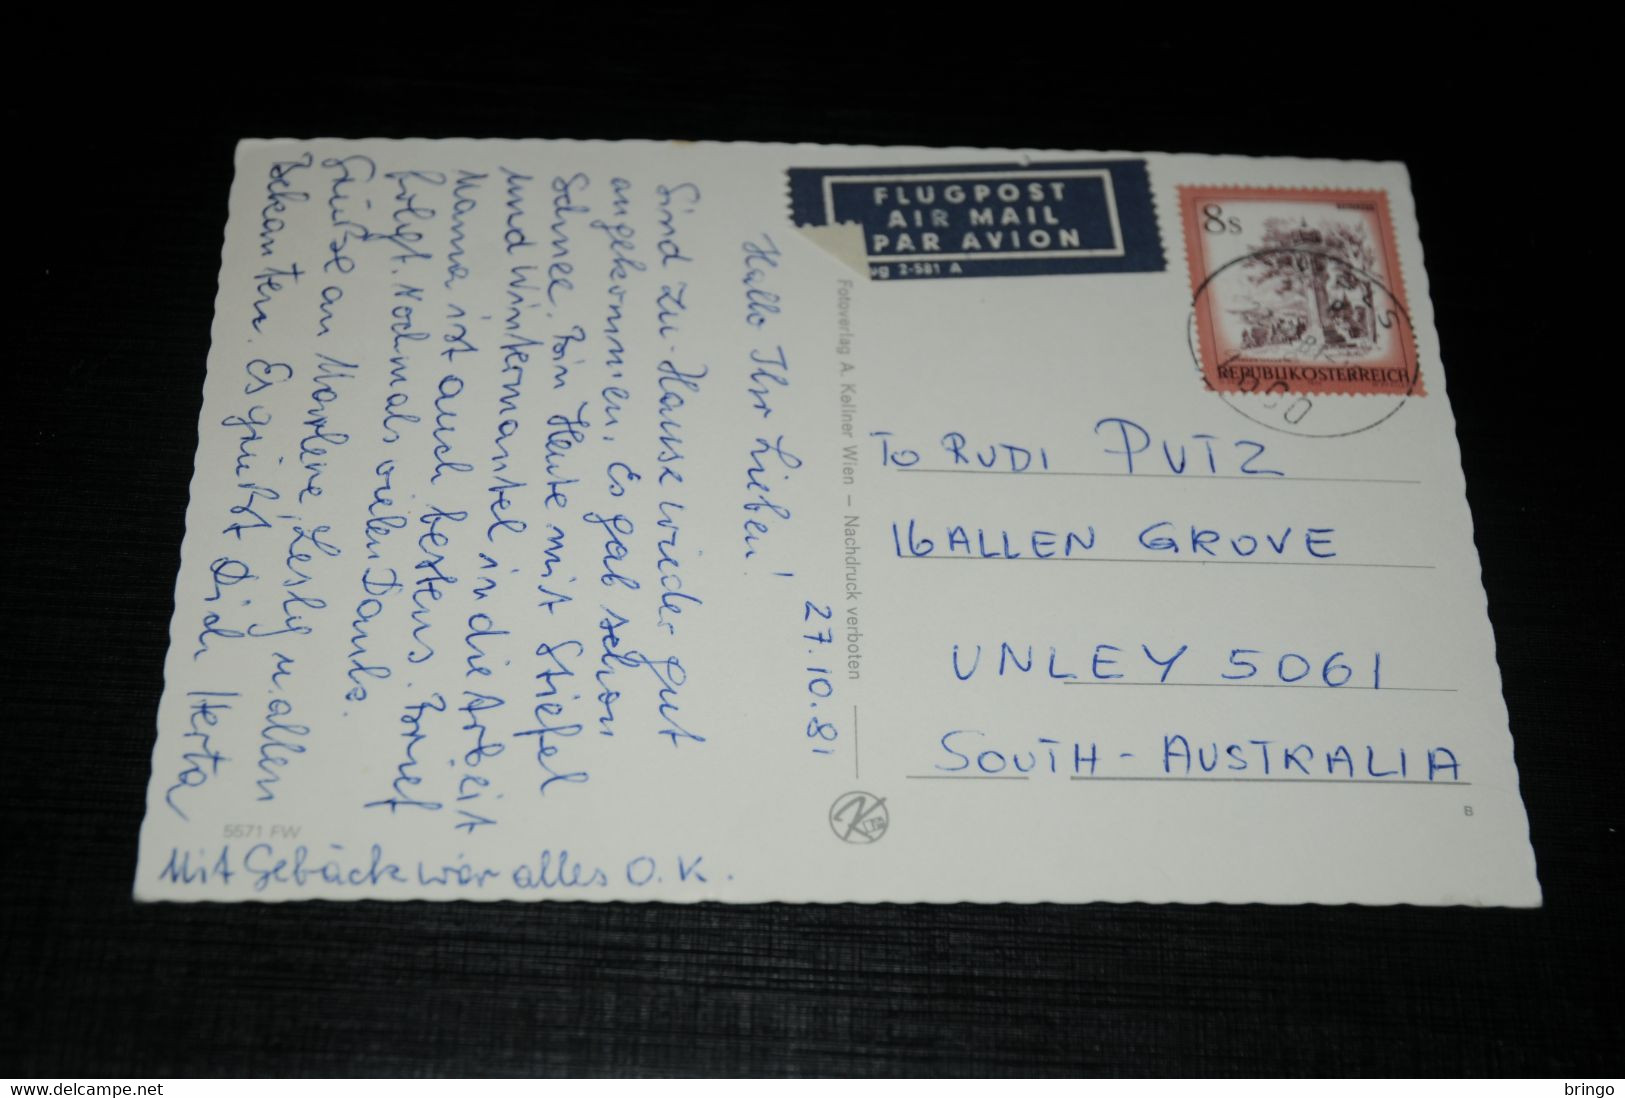 27.10.81
Hallo Ihr Lieben!
Sind zu-Hause wieder gut
angekommen. Es gab schon
Schnee. Bin Heute mit Stiefel
und Wintermantel in die Arbeit
Mama ist auch bestens. Brief
folgt. Nochmals vielen Dank.
Grüße an Marlene, Lesly u. allen
Bekannten. Es grüßt Dich Herta
Mit Gebäck war alles O.K.
5571 FW
Fotoverlag A. Kellner Wien – Nachdruck verboten
FLUGPOST
AIR MAIL
PAR AVION
ug 2-581 A
8s
REPUBLIK ÖSTERREICH
TO RUDI PUTZ
16 ALLEN GROVE
UNLEY 5061
SOUTH-AUSTRALIA
B
bringo
www.delcampe.net